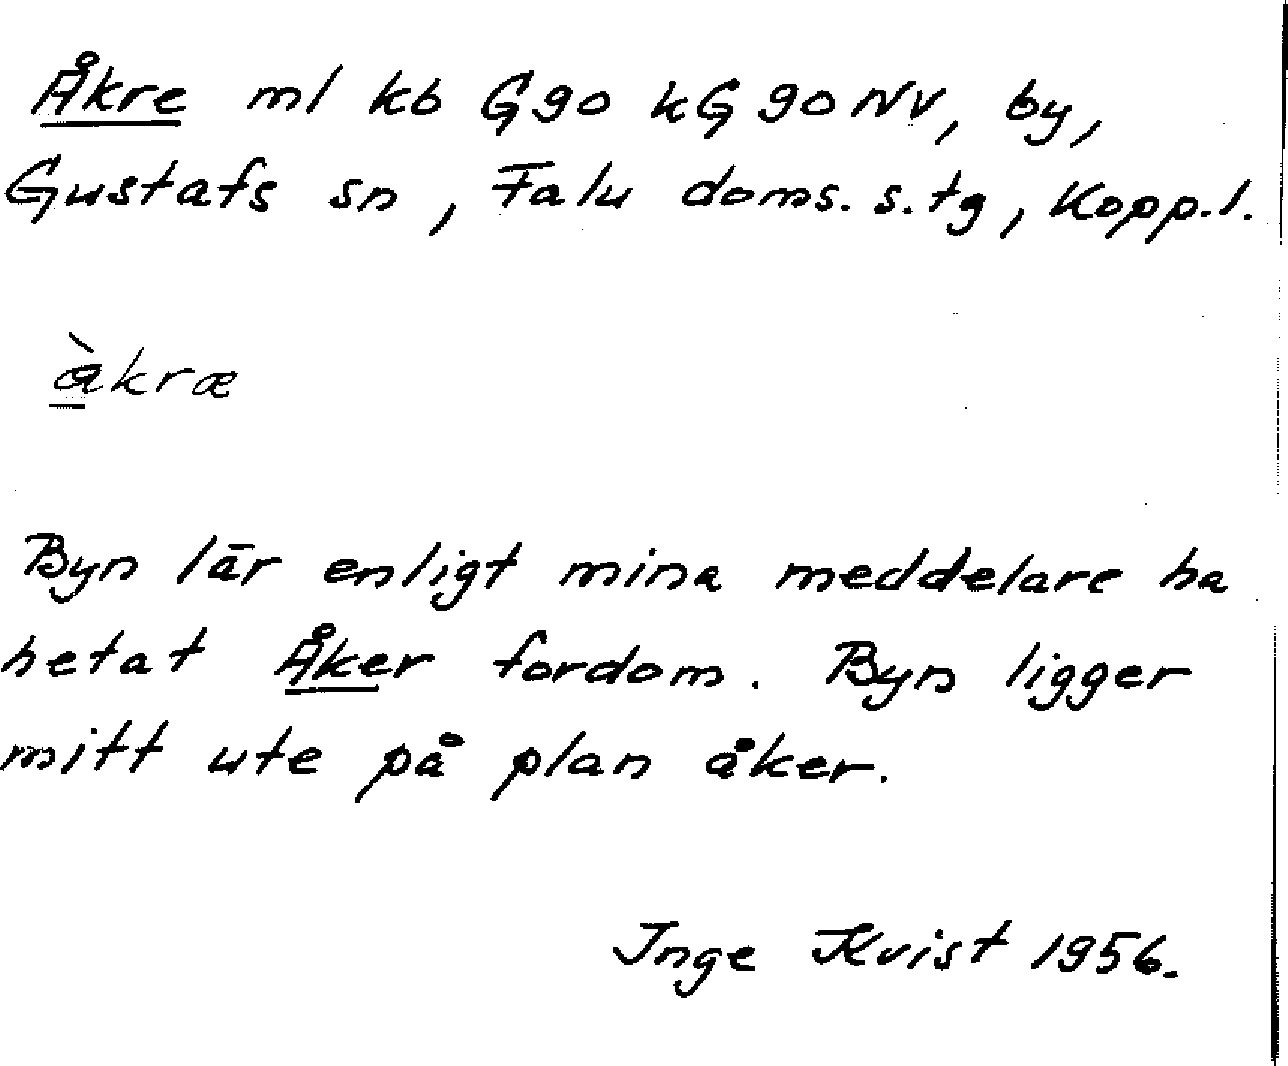 Åkre ml kb G90 kG90NV, by,
Gustafs sn, Falu doms.s.tg, Kopp.l.
å̀kræ
Byn lär enligt mina meddelare ha
hetat Åker fordom. Byn ligger
mitt ute på plan åker.
Inge Kvist 1956.